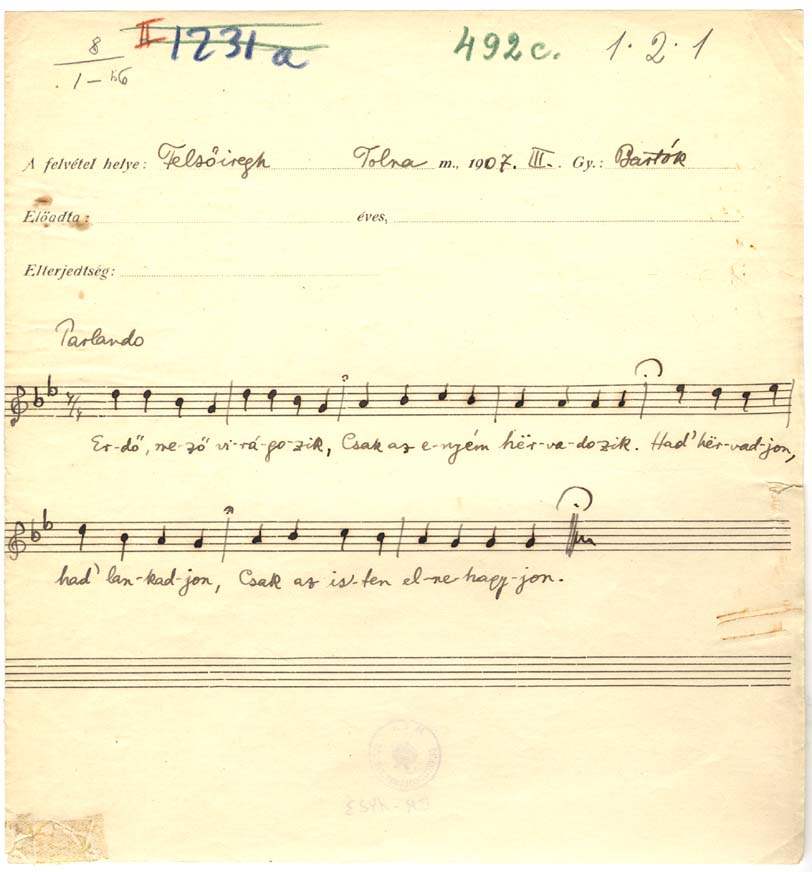 8 II 1231a 492c. 1·2·1
1–56
A felvétel helye: Felsőiregh Tolna m., 1907. III. Gy.: Bartók
Előadta: éves,
Elterjedtség:
Parlando
Er-dő, me-ző vi-rá-go-zik, Csak az e-nyém hër-va-do-zik. Had' hër-vad-jon,
had' lan-kad-jon, Csak az is-ten el-ne-hagy-jon.